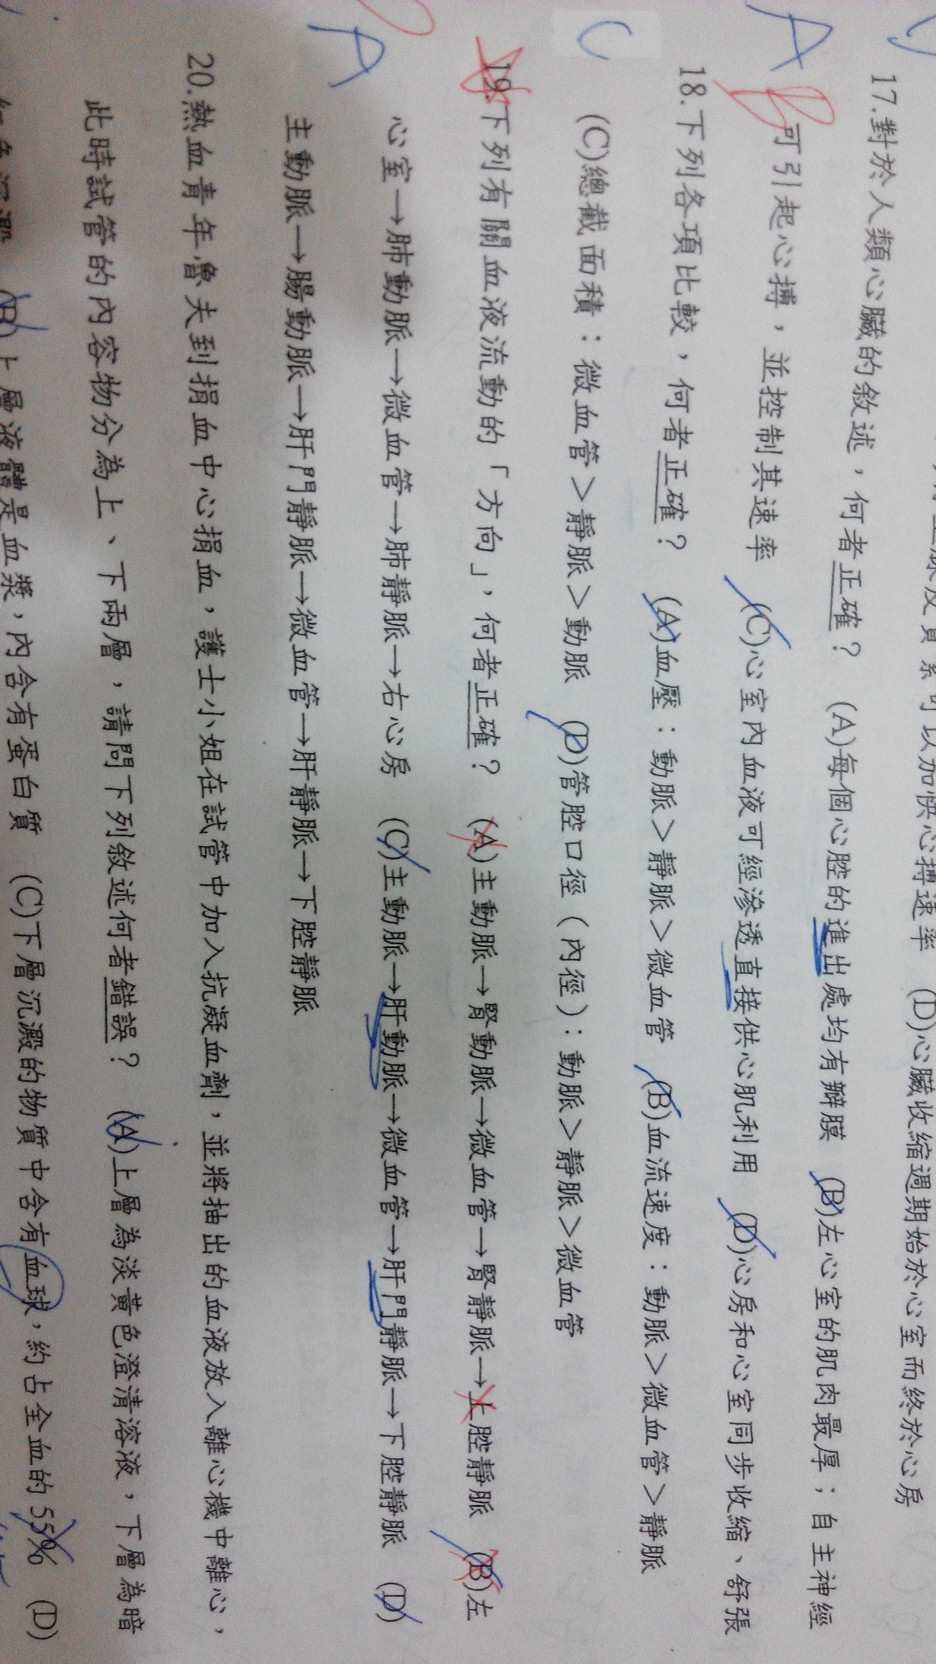 可以加快心搏速率 (D)心臟收縮週期始於心室而終於心房
17.對於人類心臟的敘述，何者正確？ (A)每個心腔的進出處均有瓣膜 (B)左心室的肌肉最厚；自主神經
A 可引起心搏，並控制其速率 (C)心室內血液可經滲透直接供心肌利用 (D)心房和心室同步收縮、舒張
18.下列各項比較，何者正確？ (A)血壓：動脈＞靜脈＞微血管 (B)血流速度：動脈＞微血管＞靜脈
C (C)總截面積：微血管＞靜脈＞動脈 (D)管腔口徑（內徑）：動脈＞靜脈＞微血管
19.下列有關血液流動的「方向」，何者正確？ (A)主動脈→腎動脈→微血管→腎靜脈→上腔靜脈 (B)左
心室→肺動脈→微血管→肺靜脈→右心房 (C)主動脈→肝動脈→微血管→肝門靜脈→下腔靜脈 (D)
A 主動脈→腸動脈→肝門靜脈→微血管→肝靜脈→下腔靜脈
20.熱血青年魯夫到捐血中心捐血，護士小姐在試管中加入抗凝血劑，並將抽出的血液放入離心機中離心，
此時試管的內容物分為上、下兩層，請問下列敘述何者錯誤？ (A)上層為淡黃色澄清溶液，下層為暗
紅色沉澱 (B)上層液體是血漿，內含有蛋白質 (C)下層沉澱的物質中含有血球，約占全血的55% (D)